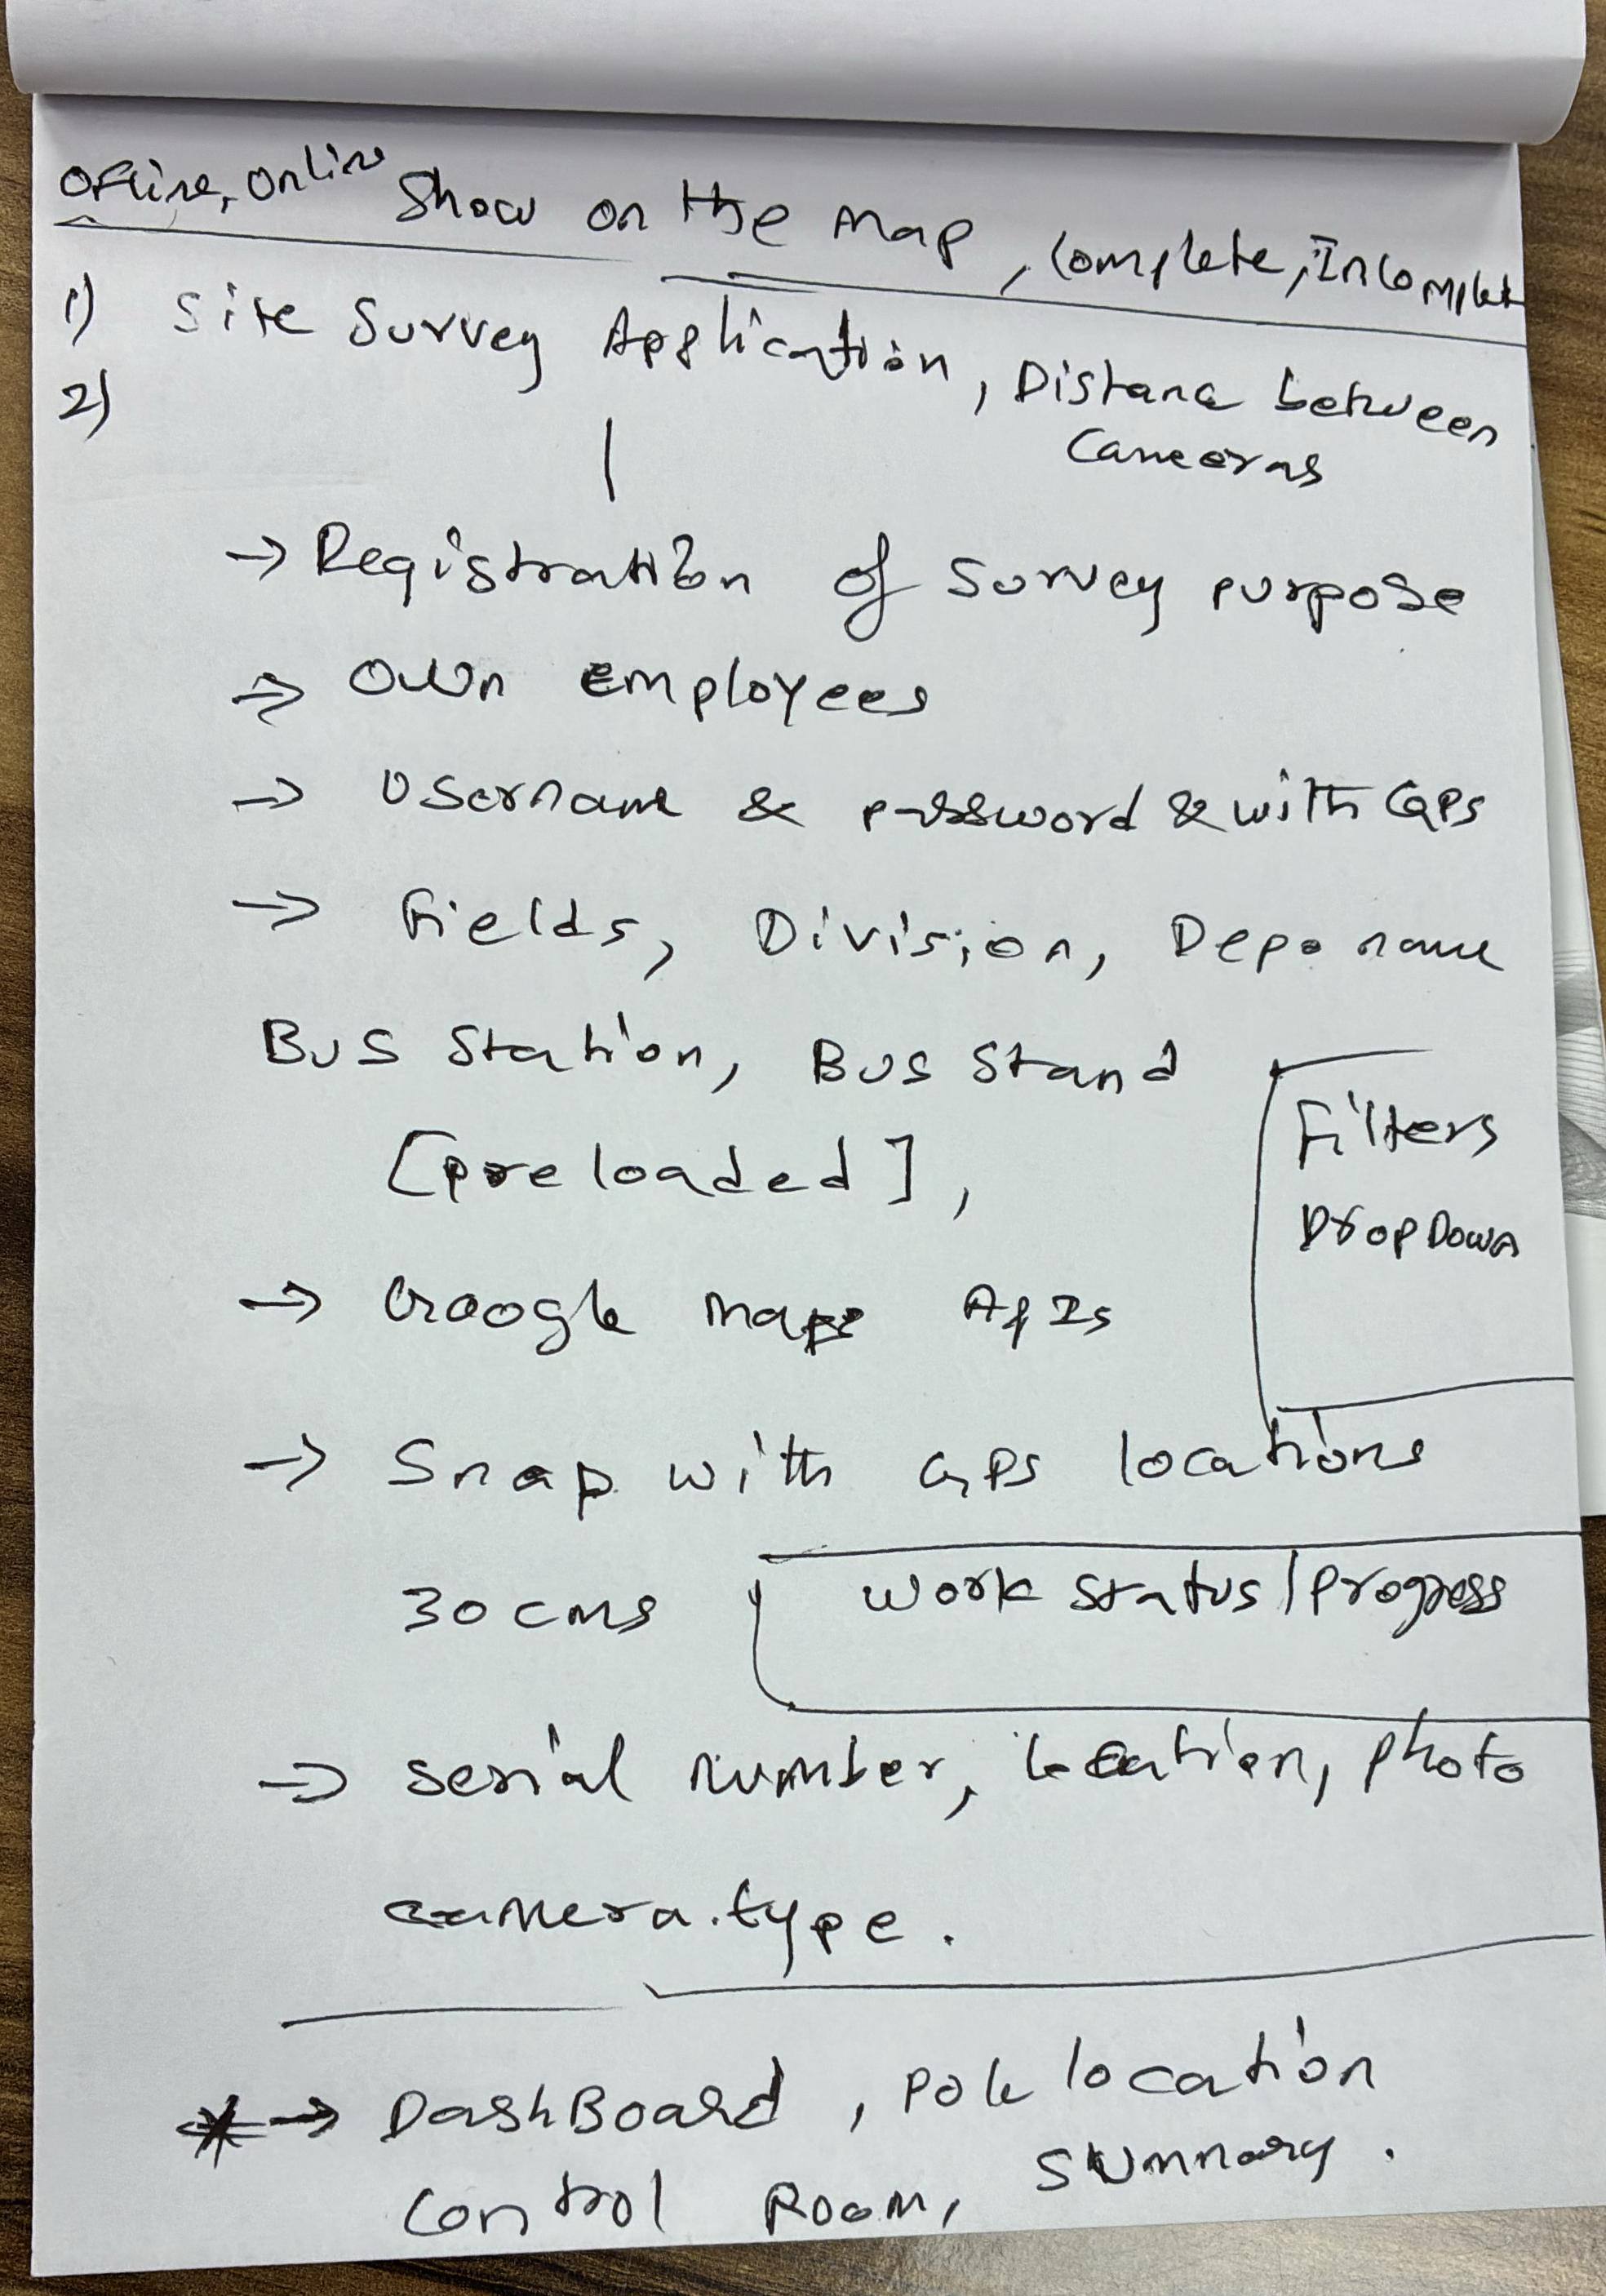 Ofline, Online Show on the map, Complete, Incomplet
1) Site Survey Application, Distance between
Cameras
2)
→ Registration of Survey purpose
→ Own Employees
→ Username & password & with GPS
→ Fields, Division, Depo name
Bus Station, Bus Stand
[preloaded],
Filters
DropDown
→ Google maps APIs
→ Snap with GPS locations
30 cms
Work Status/Progress
→ Serial number, location, photo
camera.type.
* → DashBoard, Pole location
Control Room, Summary.